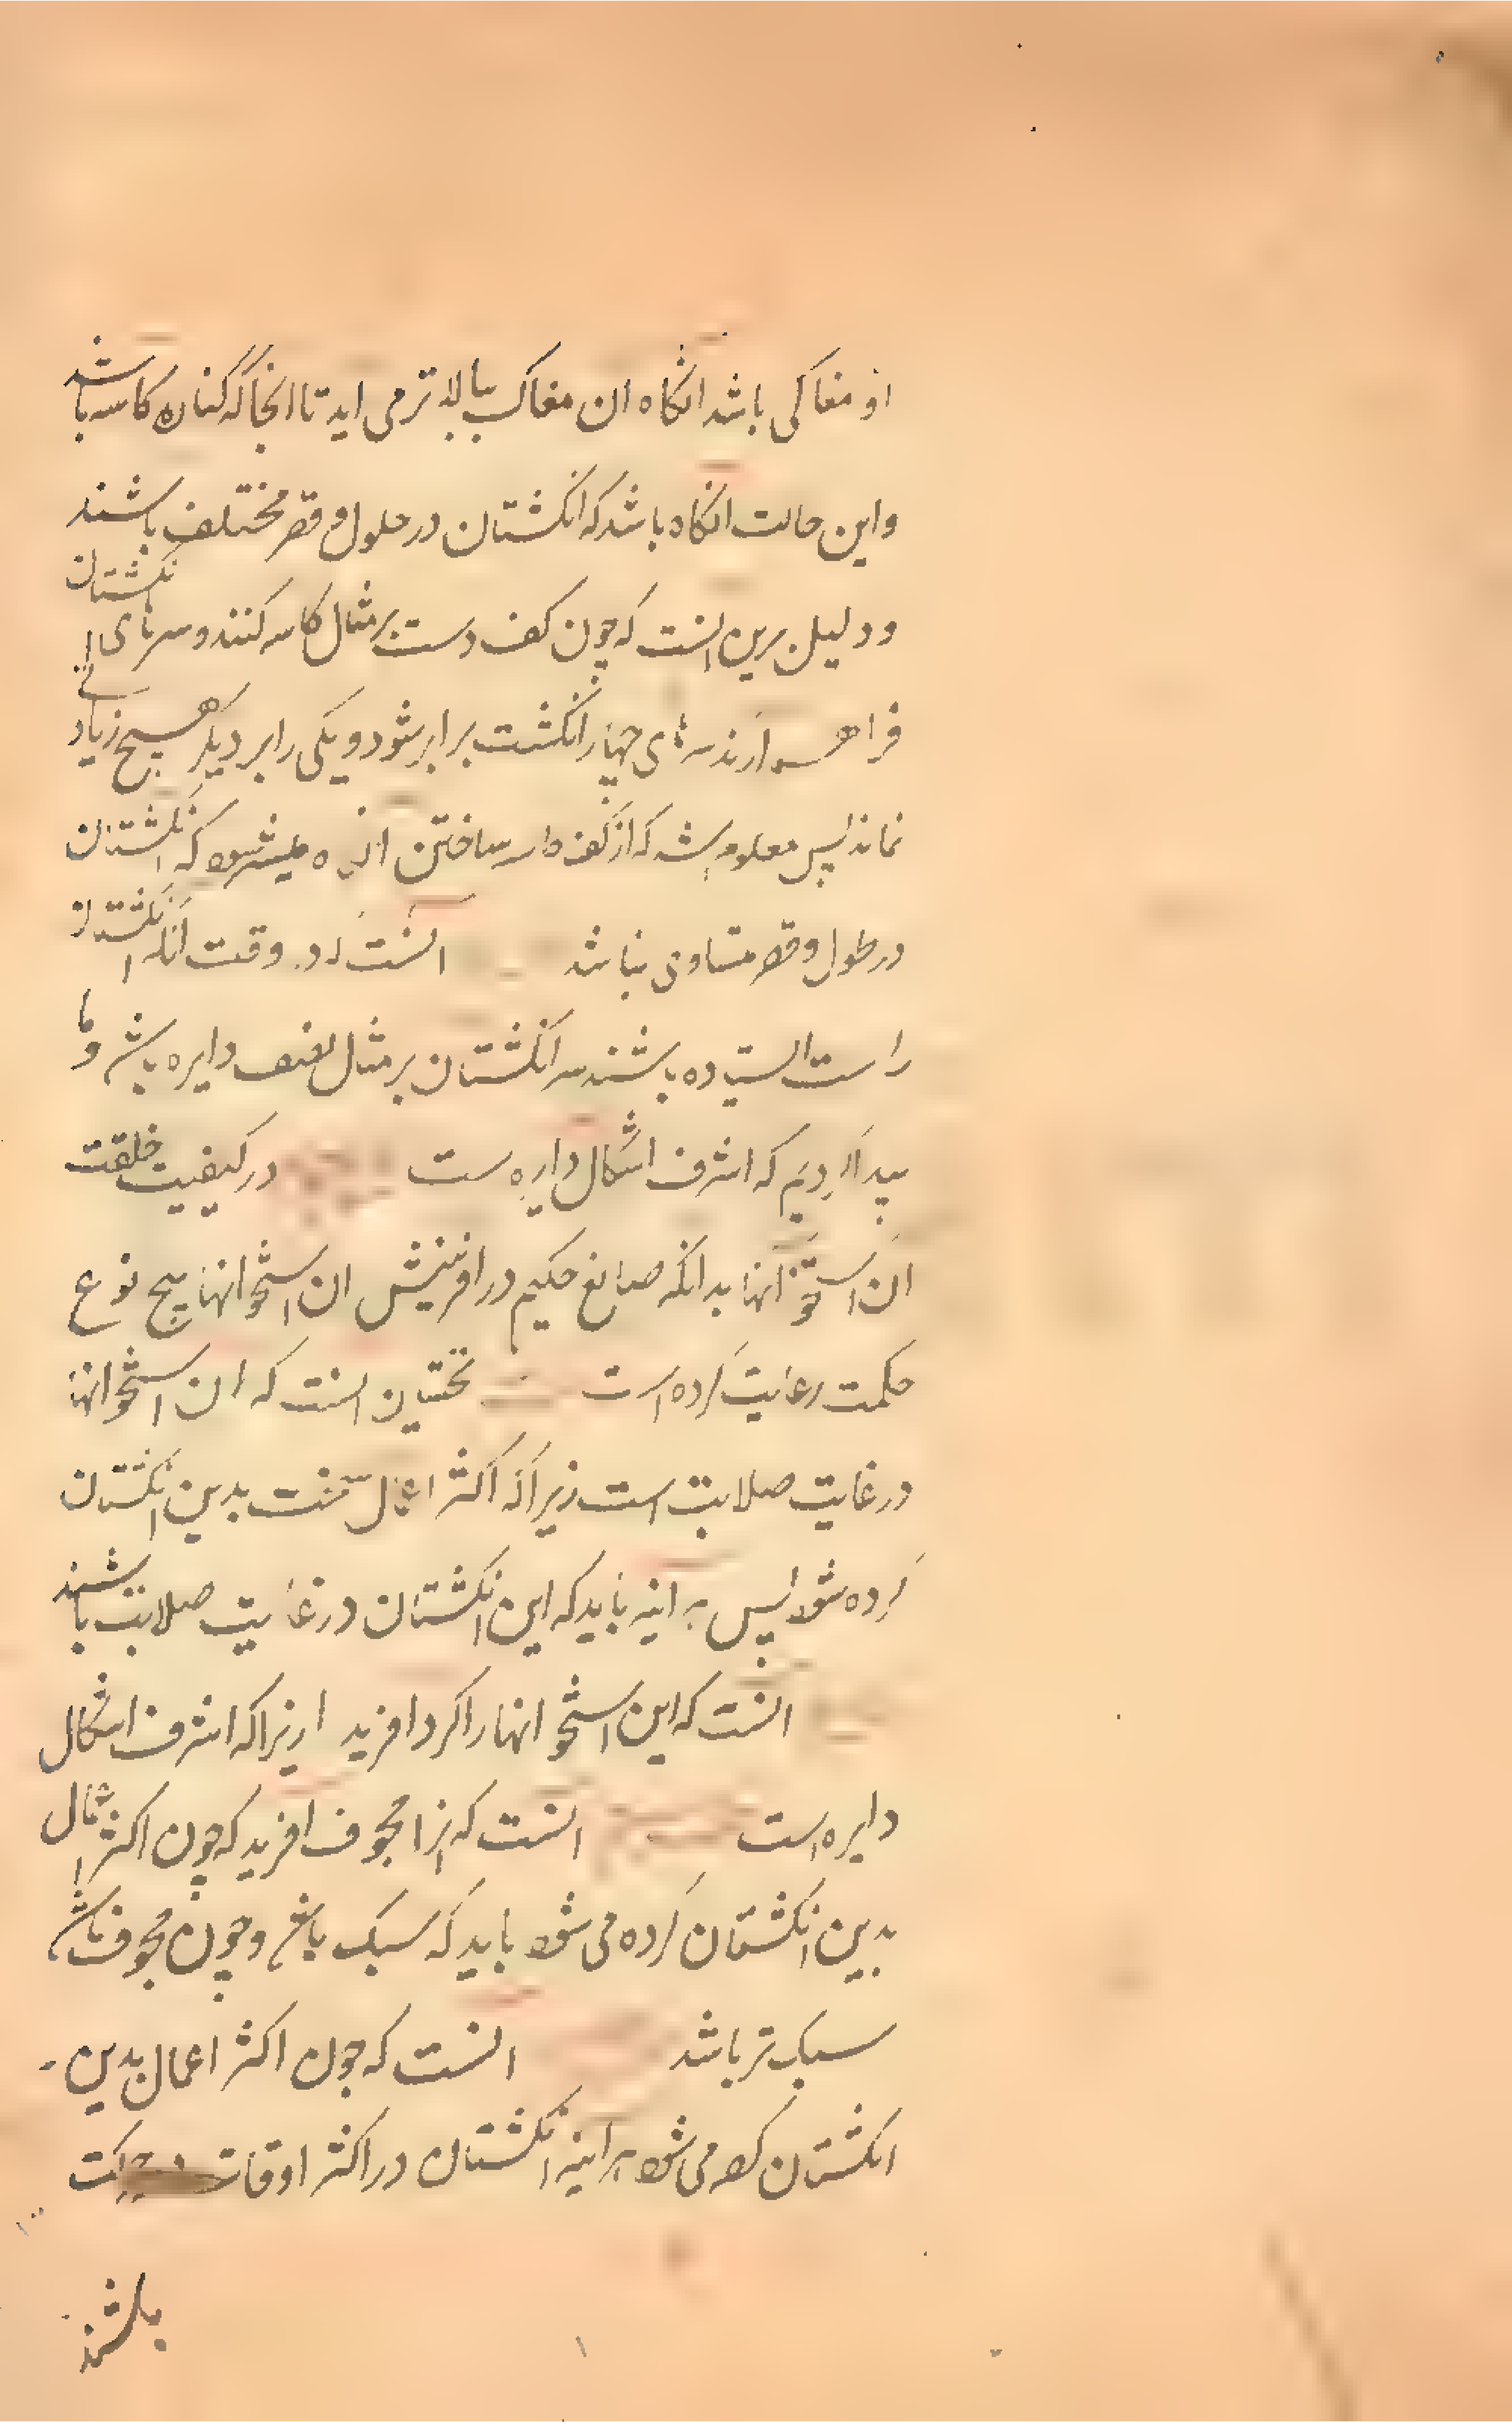 او مغاکی باشد انکاه ان مغاک ببالاتر می اید تا انجا که کناره کاسه باشد
واین حالت انکاه باشد که انکشتان در طول و قصر مختلف باشند
و دلیل برین انست که چون کف دست بر مثال کاسه کنند و سرهای انکشتان
فراهم ارند سرهای چهار انکشت برابر شود و یکی را بر دیکر هیچ زیادتی
نماند پس معلوم شد که از کف ساختن میشود که انکشتان
در طول وقصر متساوی نباشد انست که در وقت انکه انکشتان
راست ایستاده باشند سر انکشتان بر مثال نصف دایره باشد وما
پیدا کردیم که اشرف اشکال دایره ست در کیفیت خلقت
ان استخوانها بدانکه صانع حکیم در افرینش ان استخوانها پنج نوع
حکمت رعایت کرده است نخستین انست که ان استخوانها
در غایت صلابت است زیرا که اکثر اعمال بدین انکشتان
کرده شود پس هراینه باید که این انکشتان در غایت صلابت باشند
انست که این استخوانها را کرد افرید زیرا که اشرف اشکال
دایره است انست که انرا مجوف افرید که چون اکثر اعمال
بدین انکشتان کرده می شود باید که سبک باشد وچون مجوف باشد
سبک تر باشد انست که چون اکثر اعمال بدین
انکشتان کرده می شود هراینه انکشتان در اکثر اوقات در حرکت
باشند